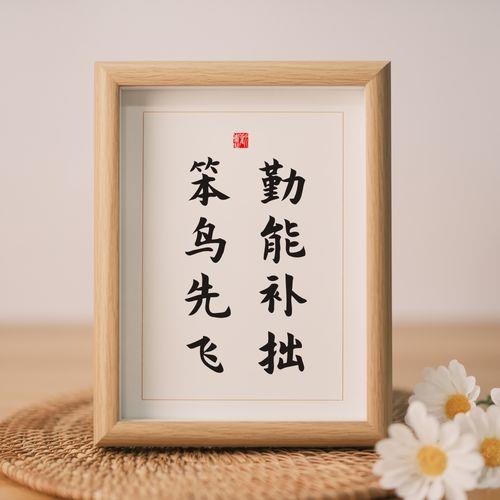 勤能补拙
笨鸟先飞